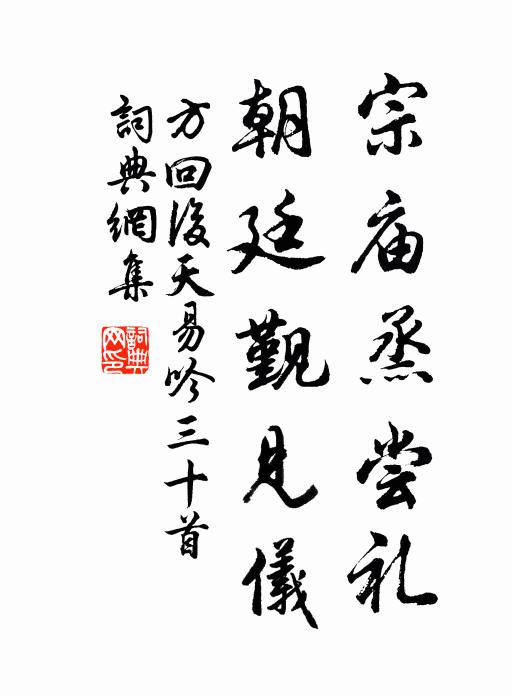 宗庙烝尝礼
朝廷觐见儀
方回後天易吟三十首
詞典網集
詞典网印